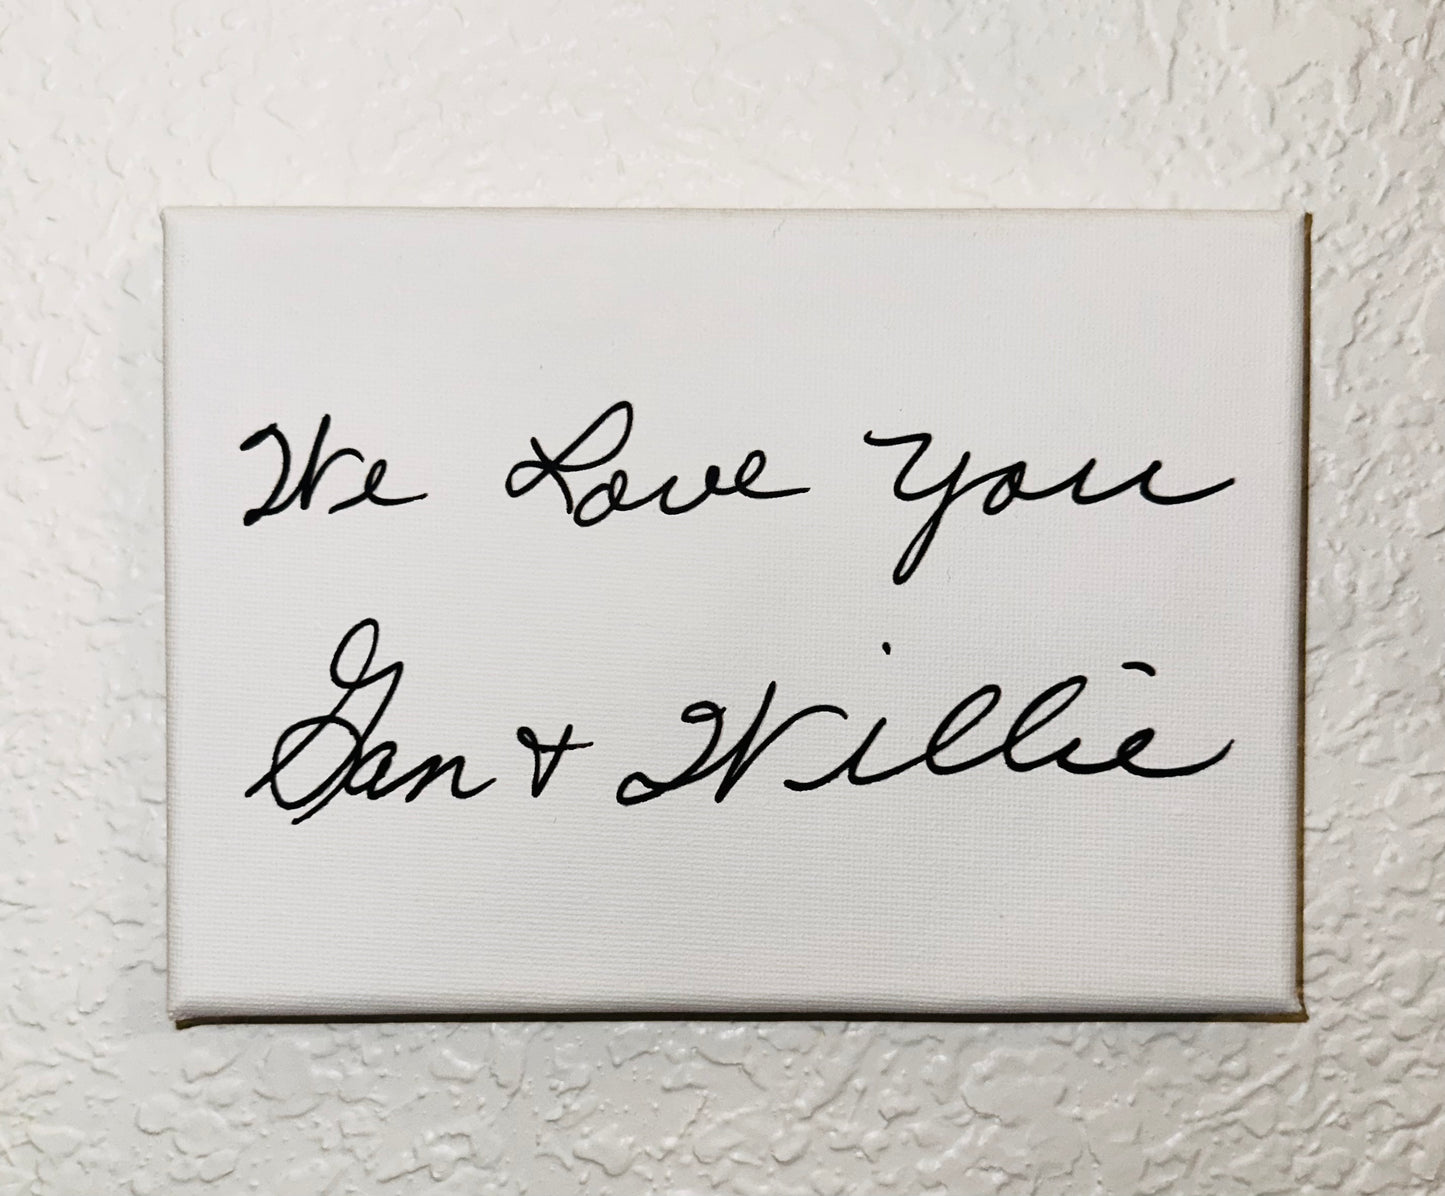 We Love You
Gan + Willie